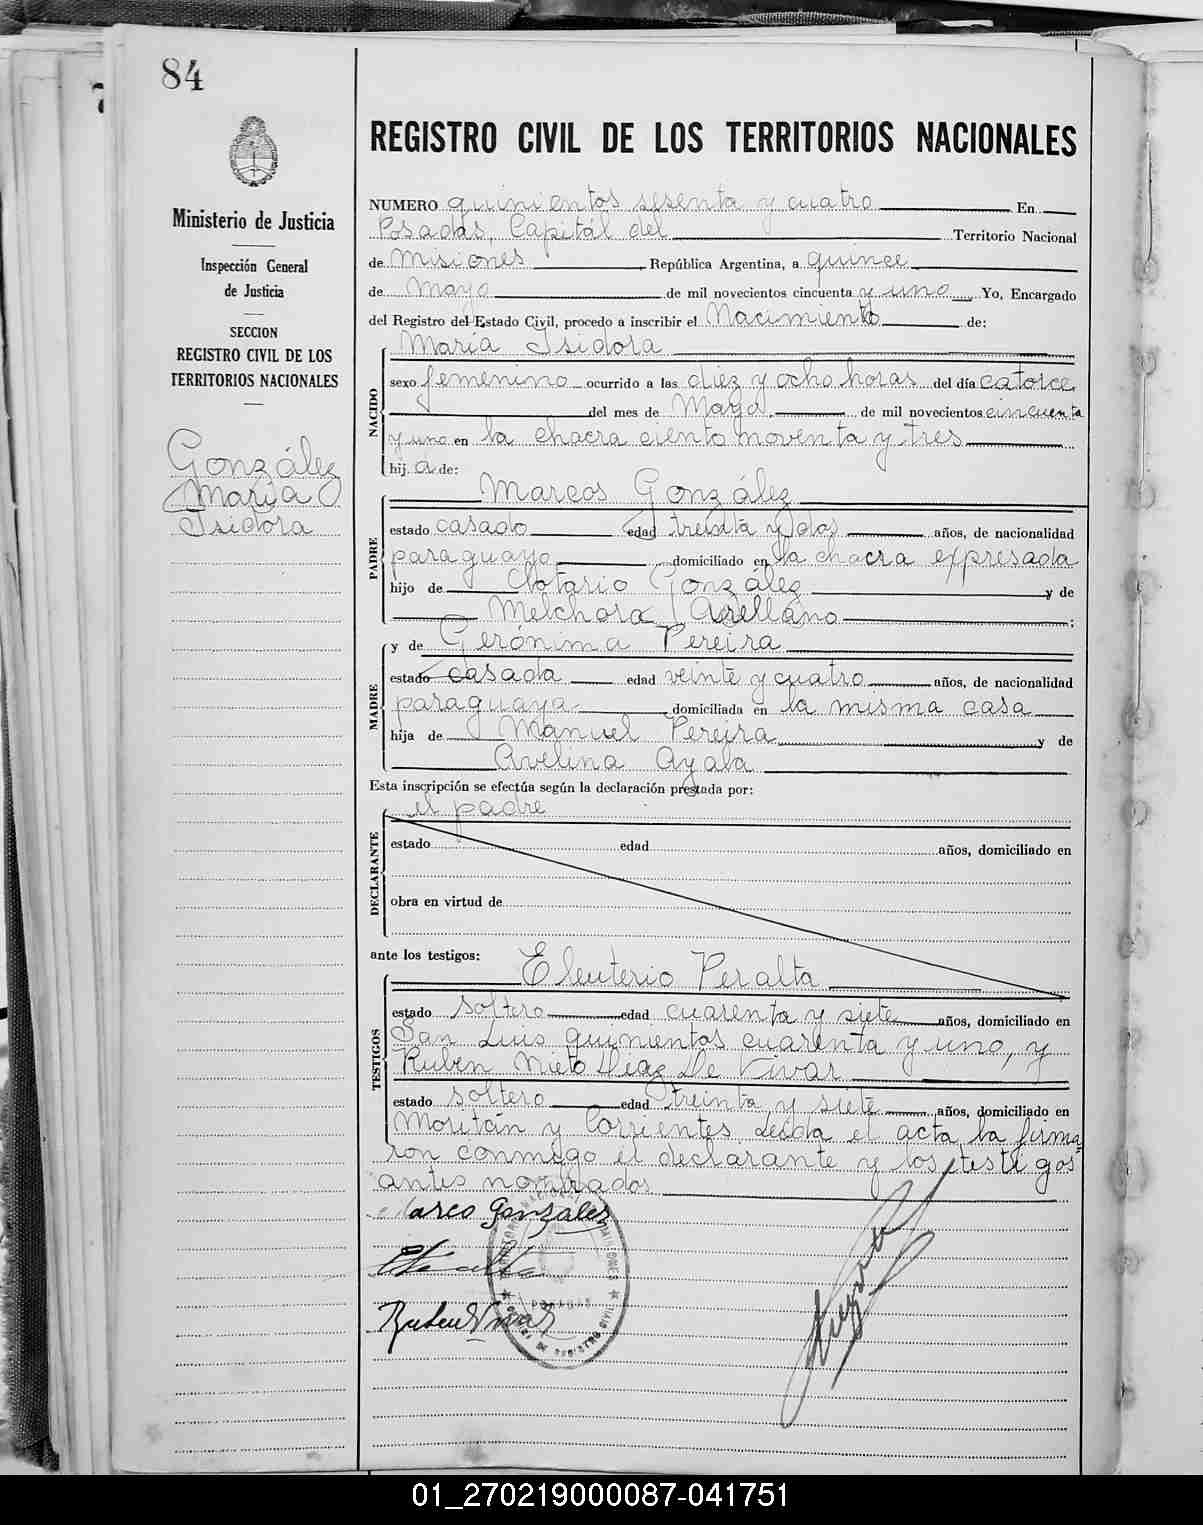 84
Ministerio de Justicia
Inspección General
de Justicia
SECCION
REGISTRO CIVIL DE LOS
TERRITORIOS NACIONALES
González
María
Isidora
REGISTRO CIVIL DE LOS TERRITORIOS NACIONALES
NUMERO quinientos sesenta y cuatro En
Posadas, Capitál del Territorio Nacional
de Misiones República Argentina, a quince
de Mayo de mil novecientos cincuenta y uno Yo, Encargado
del Registro del Estado Civil, procedo a inscribir el Nacimiento de:
NACIDO
María Isidora
sexo femenino ocurrido a las diez y ocho horas del día catorce
del mes de Mayo de mil novecientos cincuenta
y uno en la chacra ciento noventa y tres
hij a de:
PADRE
Marcos González
estado casado edad treinta y dos años, de nacionalidad
paraguayo domiciliado en la chacra expresada
hijo de Clotario González y de
Melchora Arellano ;
MADRE
y de Gerónima Pereira
estado casada edad veinte y cuatro años, de nacionalidad
paraguaya domiciliada en la misma casa
hija de Manuel Pereira y de
Avelina Ayala
Esta inscripción se efectúa según la declaración prestada por:
DECLARANTE
el padre
estado edad años, domiciliado en
obra en virtud de
ante los testigos:
TESTIGOS
Eleuterio Peralta
estado soltero edad cuarenta y siete años, domiciliado en
San Luis quinientos cuarenta y uno, y
Ruben Nieto Diaz De Vivar
estado soltero edad treinta y siete años, domiciliado en
Moritán y Corrientes. Leída el acta, la firma
ron conmigo el declarante y los testigos
antes nombrados
Marco González
Ruben Vivar
POSADAS
01_270219000087-041751